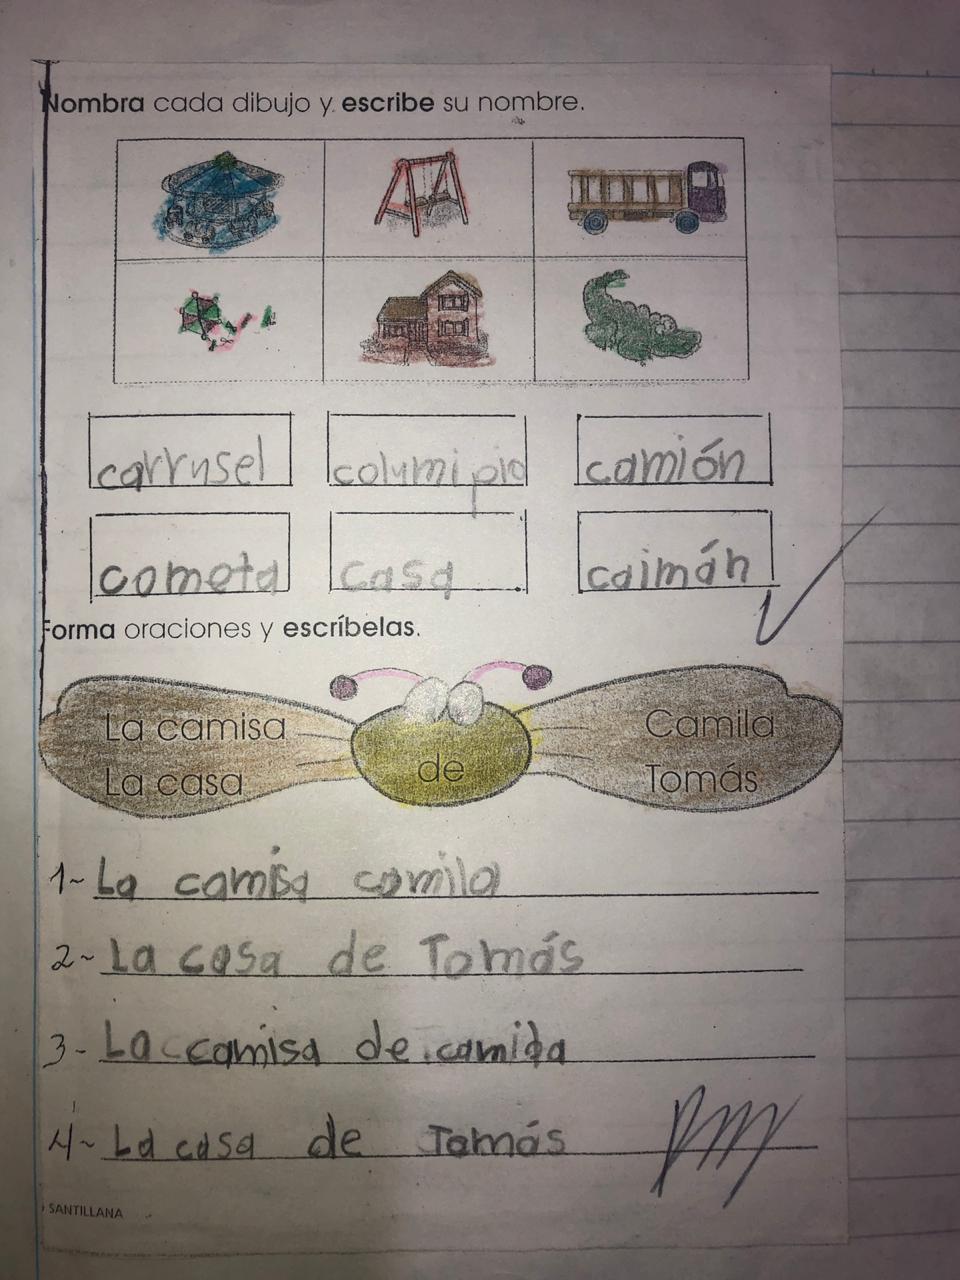 Nombra cada dibujo y escribe su nombre.
carrusel columipio camión
cometa casa caimán
Forma oraciones y escríbelas.
La camisa
La casa
de
Camila
Tomás
1- La camisa camila
2- La casa de Tomás
3- La camisa de camida
4- La casa de Tomás
SANTILLANA